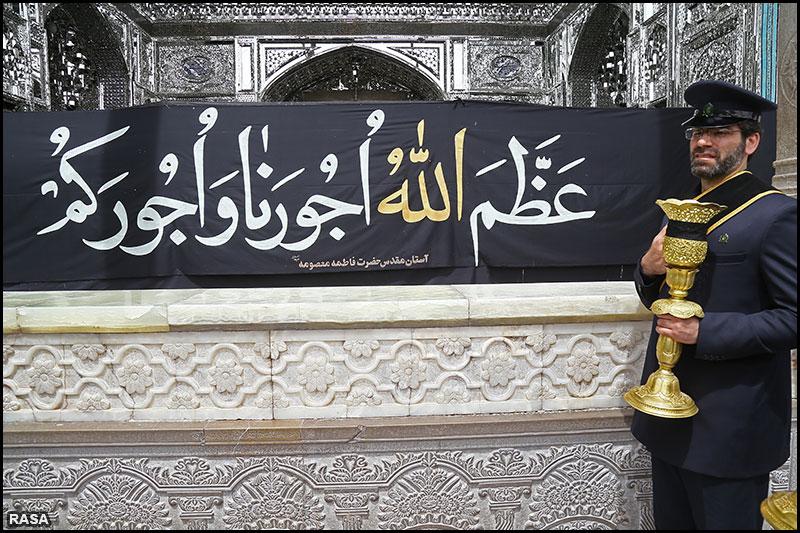 عَظَّمَ اللهُ اُجُورَنٰا وَاُجُورَكُمْ
آستان مقدس حضرت فاطمه معصومه
RASA